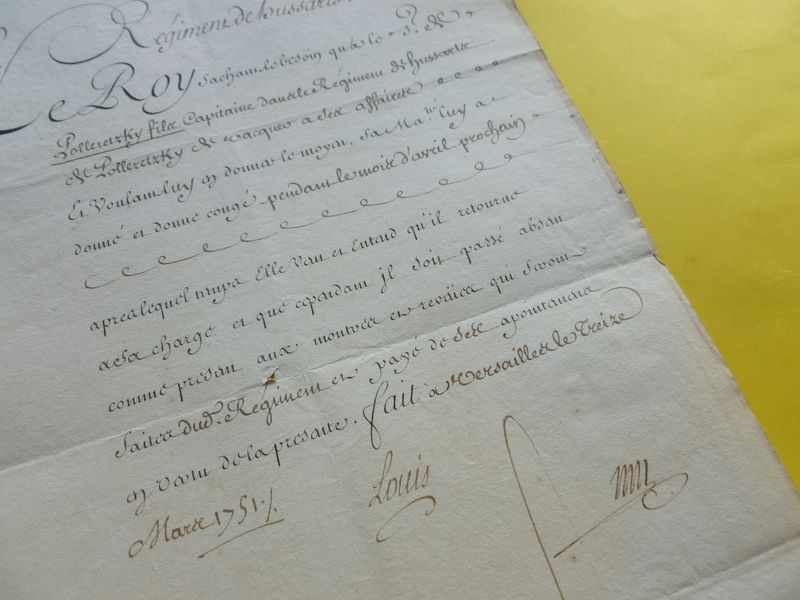 Regiment de hussards
Le Roy sachant le besoin qu'a le S.r de
Polleretzky fils Capitaine dans le Régiment de hussards
de Polleretzky de vacquer a ses affaires
Et Voulant luy en donner le moyen, Sa Ma.té luy a
donné et donne congé pendant le mois d'avril prochain
apres lequel temps Elle Veut et Entend qu'il retourne
a sa charge et que cependant jl soit passé absent
comme present aux montres et reveües qui seront
faites dud. Regiment et payé de ses apointemens
en vertu de la presente. fait a Versailles le Treize
Mars 1751./.
Louis